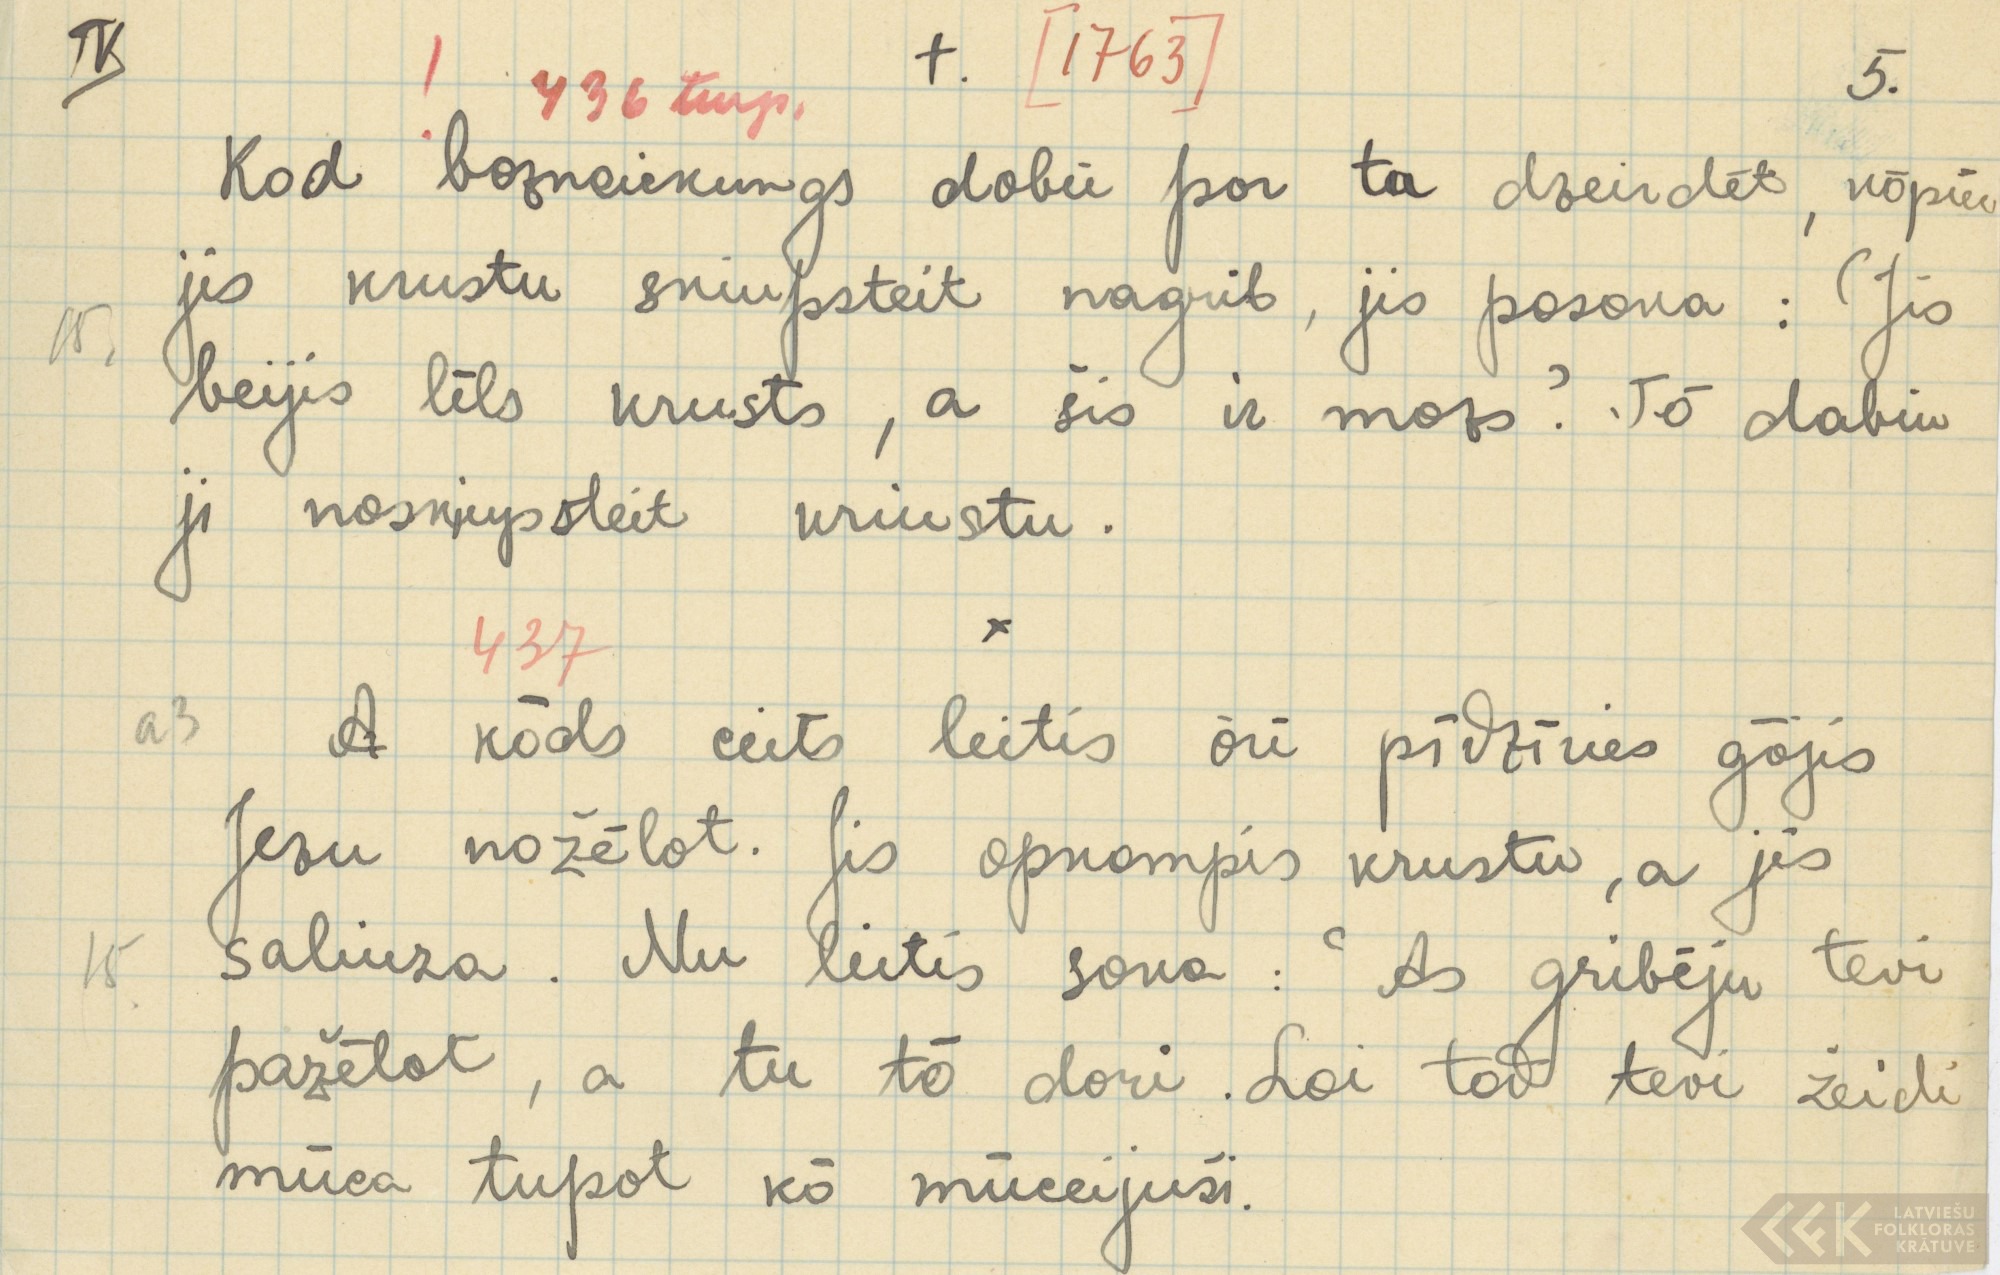 IV ! 436 turp. +. [1763] 5.
Kod bozneickungs dobu por ta dzeirdēt, kōpēc
jis krustu skiupsteit nagrib, jis posoka: (Jis
15. beijis lēls krusts, a šis ir mozs? Tō dabiu
ji noskjupsteit kriustu.
437 x
a3 A kōds ceits leitis ōri pīdzīries gōjis
Jezu nožēlot. Jis opkompis krustu, a jis
15. saliuza. Nu leitis soka: "As gribēju tevi
pažēlot, a tu tō dori. Loi tod tevi žeidi
mūca tupot kō mūceijuši.
LATVIEŠU
FOLKLORAS
KRĀTUVE